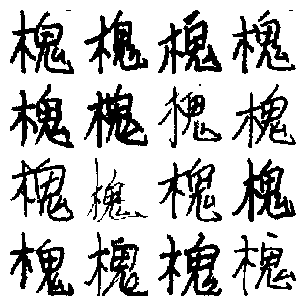 槐槐槐槐
槐槐槐槐
槐槐槐槐
槐槐槐槐